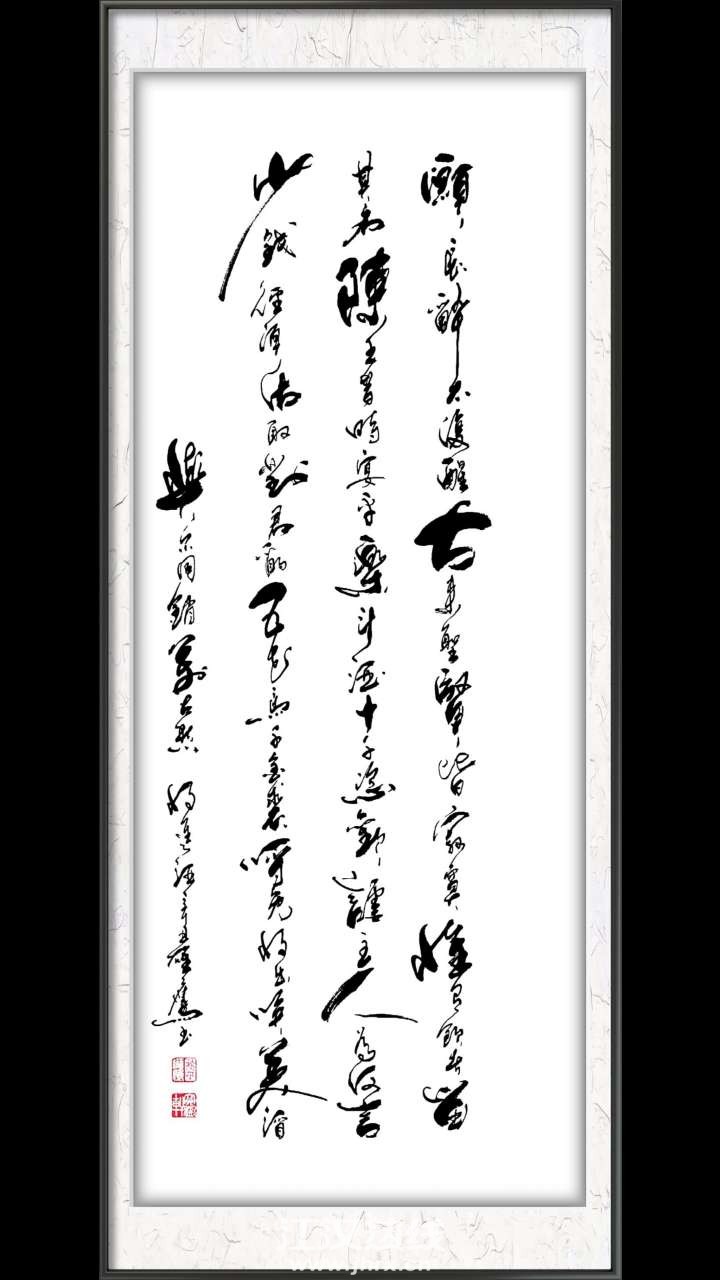 願長醉不復醒古來聖賢皆寂寞惟有飲者留
其名陳王昔時宴平樂斗酒十千恣歡謔主人為何言
少錢徑須沽取對君酌五花馬千金裘呼兒將出換美酒
與尔同銷萬古愁 將進酒辛丑雄鷹書